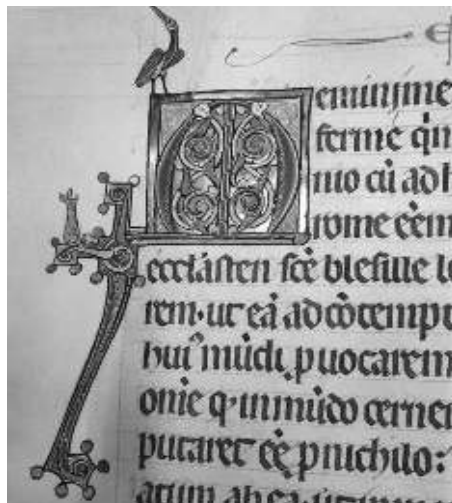 Meminime
ferme qn̄
nio cū adh
rome eēm
ecclāsten scē blesille le
rem·ut eā ad cōtempt
huiꝰ mūdi ꝓuocarem
om̄e q· in mūdo cerner
putaret eē ꝓ nichilo:
atum ab ea·